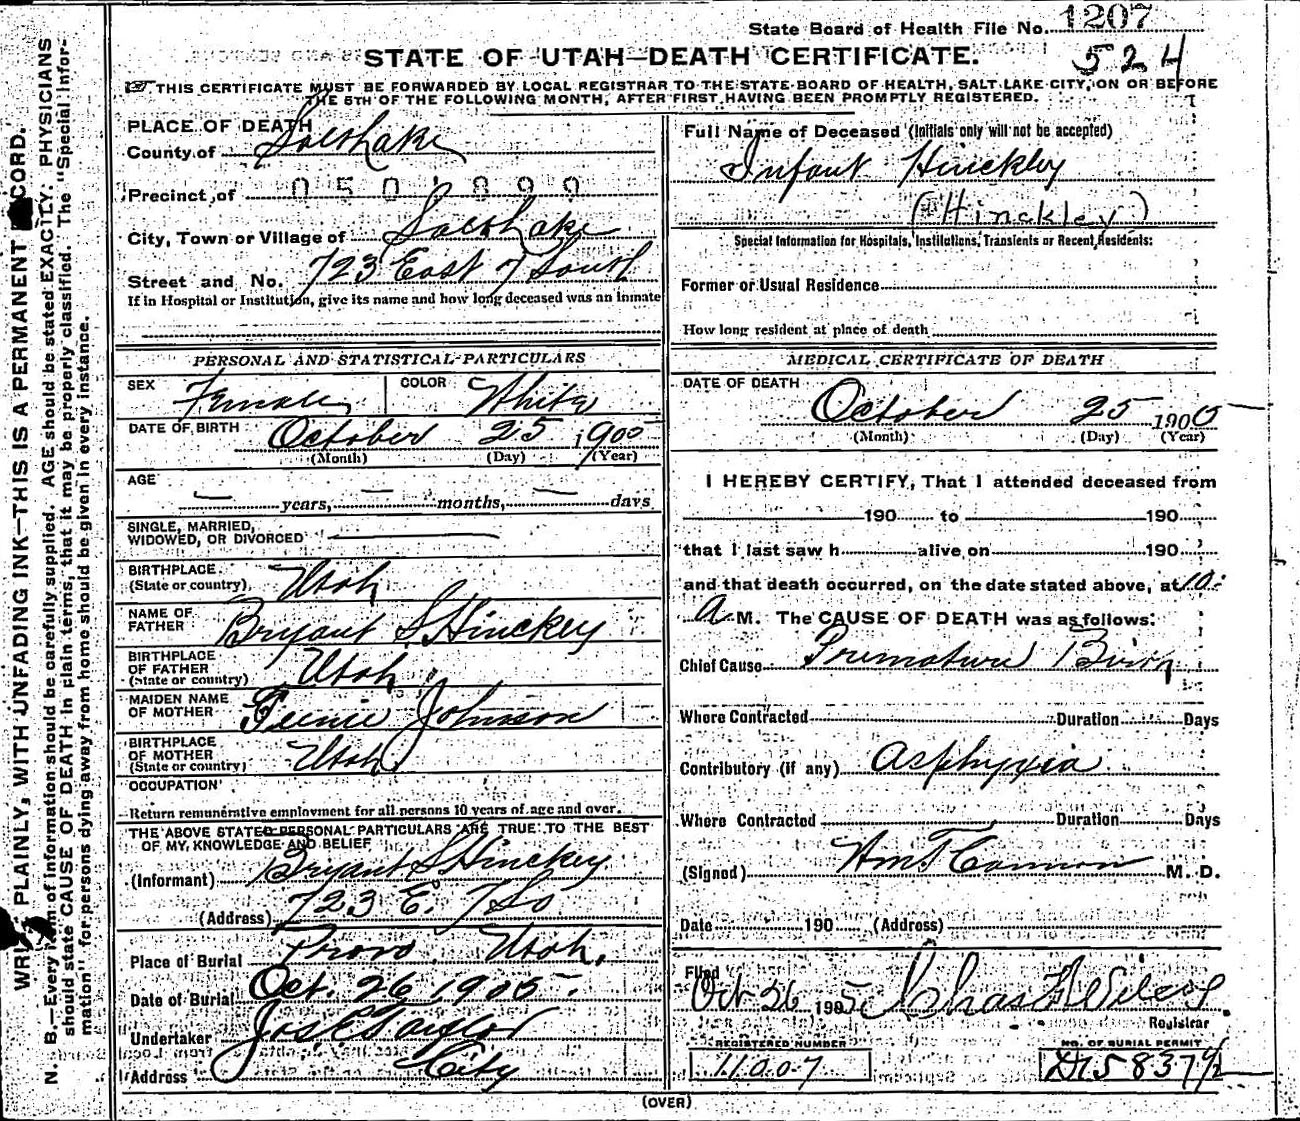 State Board of Health File No. 1207
524
STATE OF UTAH—DEATH CERTIFICATE.
THIS CERTIFICATE MUST BE FORWARDED BY LOCAL REGISTRAR TO THE STATE BOARD OF HEALTH, SALT LAKE CITY, ON OR BEFORE
THE 5TH OF THE FOLLOWING MONTH, AFTER FIRST HAVING BEEN PROMPTLY REGISTERED.
WRITE PLAINLY, WITH UNFADING INK—THIS IS A PERMANENT RECORD.
N. B.—Every item of information should be carefully supplied. AGE should be stated EXACTLY. PHYSICIANS
should state CAUSE OF DEATH in plain terms, that it may be properly classified. The "Special Infor-
mation" for persons dying away from home should be given in every instance.
PLACE OF DEATH
County of Salt Lake
Precinct of 0501899
City, Town or Village of Salt Lake
Street and No. 723 East 7 South
If in Hospital or Institution, give its name and how long deceased was an inmate
PERSONAL AND STATISTICAL PARTICULARS
SEX Female COLOR White
DATE OF BIRTH October 25 1905
(Month) (Day) (Year)
AGE
— years, — months, — days
SINGLE, MARRIED,
WIDOWED, OR DIVORCED
BIRTHPLACE
(State or country) Utah
NAME OF
FATHER Bryant S. Hinckey
BIRTHPLACE
OF FATHER
(State or country) Utah
MAIDEN NAME
OF MOTHER Johnson
BIRTHPLACE
OF MOTHER
(State or country) Utah
OCCUPATION
Return remunerative employment for all persons 10 years of age and over.
THE ABOVE STATED PERSONAL PARTICULARS ARE TRUE TO THE BEST
OF MY KNOWLEDGE AND BELIEF
(Informant) Bryant S Hinckey
(Address) 723 E. 7 So
Place of Burial Provo, Utah.
Date of Burial Oct. 26 1905.
Undertaker Jos E Taylor
Address City
Full Name of Deceased (Initials only will not be accepted)
Infant Hinckley
(Hinckley)
Special Information for Hospitals, Institutions, Transients or Recent Residents:
Former or Usual Residence
How long resident at place of death
MEDICAL CERTIFICATE OF DEATH
DATE OF DEATH October 25 1905
(Month) (Day) (Year)
I HEREBY CERTIFY, That I attended deceased from
190 to 190
that I last saw h alive on 190
and that death occurred, on the date stated above, at 10:
A M. The CAUSE OF DEATH was as follows:
Chief Cause Premature Birth
Where Contracted Duration Days
Contributory (if any) Asphyxia
Where Contracted Duration Days
(Signed) Wm T Cannon M. D.
Date 190 (Address)
Filed
Oct 26 1905 Chas F Wilcox
Registrar
REGISTERED NUMBER
11007
NO. OF BURIAL PERMIT
(OVER)